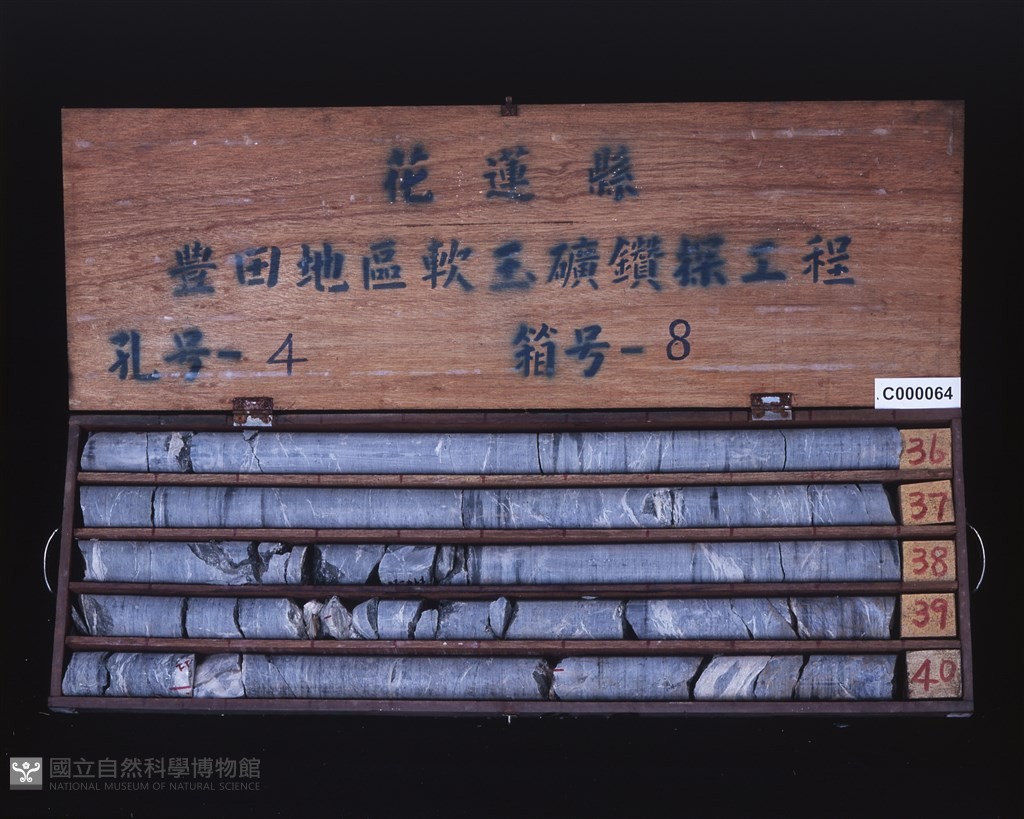 花蓮縣
豐田地區軟玉礦鑽探工程
孔号-4 箱号-8
.C000064
36
37
38
39
40
國立自然科學博物館
NATIONAL MUSEUM OF NATURAL SCIENCE